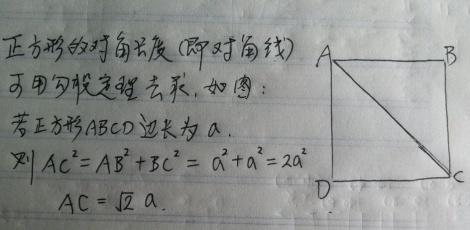 正方形的对角长度(即对角线)
可用勾股定理去求.如图:
若正方形ABCD边长为a.
则 AC²=AB²+BC²=a²+a²=2a²
AC=√2 a.
A B
D C